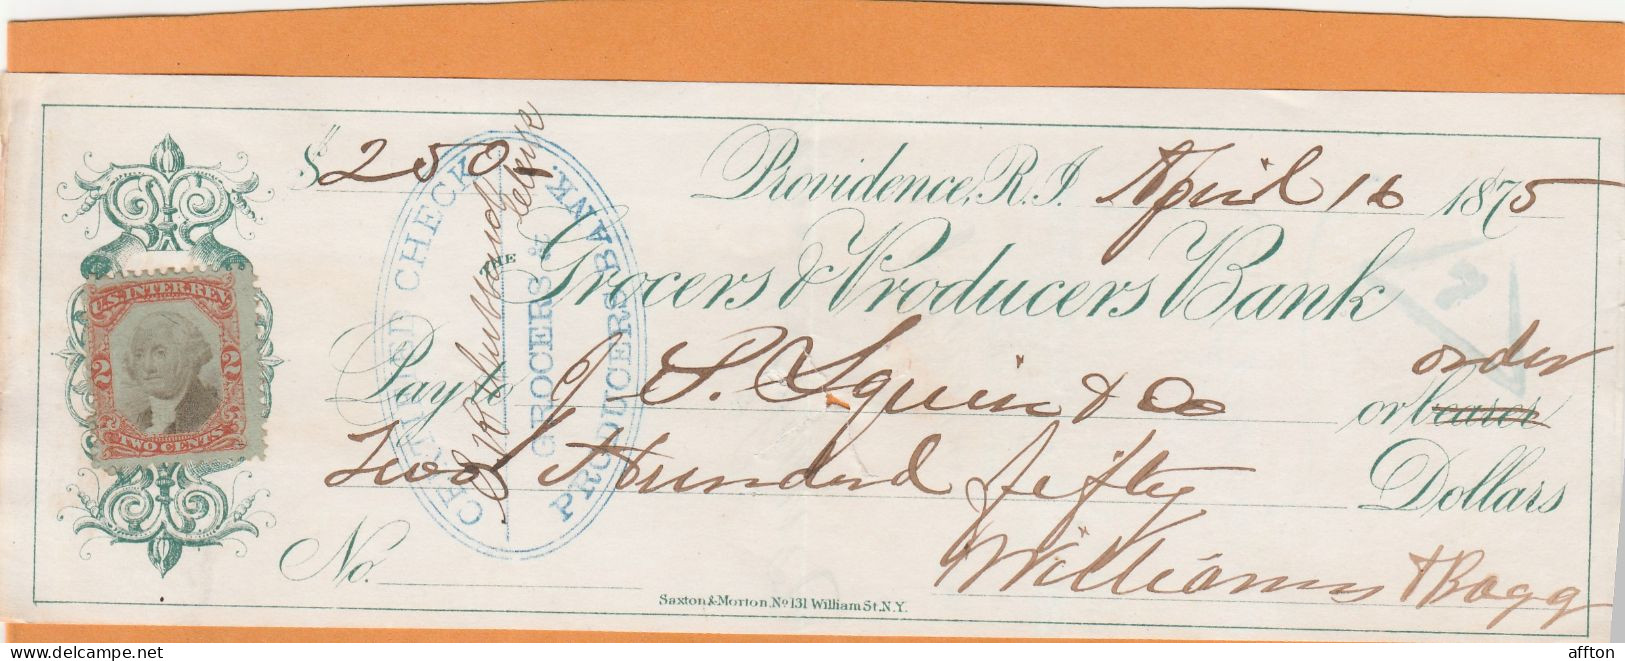 $ 250
Providence, R.I. April 16 1875
THE
Grocers & Producers Bank
Pay to J. P. Squire & Co or bearer order
Two Hundred fifty Dollars
Williams & Bagg
No.
Saxton & Morton, No 131 William St. N.Y.
U.S. INTER. REV.
2 2
TWO CENTS
CERTIFIED CHECK
GROCERS &
PRODUCERS BANK.
delcampe.net
affton